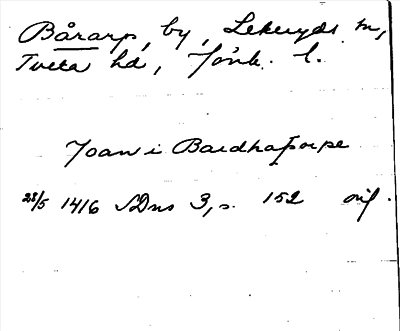 Bårarp, by, Lekeryds sn,
Tveta hd, Jönk. l.
Joan i Bardhaþorpe
28/5 1416 SDns 3, s. 152 oif.